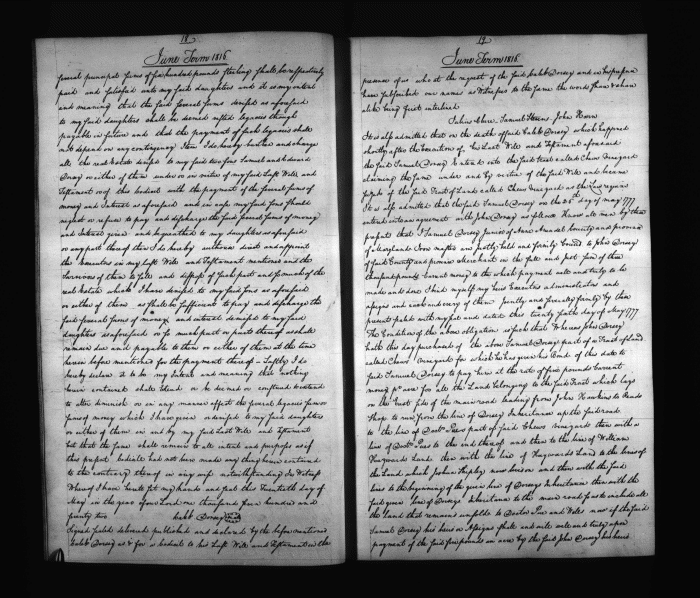 18
June Term 1816
several principal sums of six hundred pounds Sterling shall be effectively
paid and satisfied unto my said daughters and it is my intent
and meaning that the said several sums devised as aforesaid
to my said daughters shall be deemed vested legacies though
payable in future and that the payment of such legacies shall
not depend on any contingency Item I do hereby burthen and charge
all the real estate devised to my said two sons Samuel and Edward
Dorsey or either of them under or in virtue of my said Last Will and
Testament or of this Codicil with the payment of the several sums of
money and Interest as aforesaid and in case my said sons should
neglect or refuse to pay and discharge the said several sums of money
and Interest given and bequeathed to my daughters as aforesaid
or any part thereof then I do hereby authorise direct and appoint
the Executors in my Last Will and Testament mentioned and the
survivors of them to sell and dispose of such part and so much of the
real estate which I have devised to my said sons as aforesaid
or either of them as shall be sufficient to pay and discharge the
said several sums of money and interest devised to my said
daughters as aforesaid or so much part or parts thereof as shall
remain due and payable to them or either of them at the time
herein before mentioned for the payment thereof Lastly I do
hereby declare it to be my intent and meaning that nothing
herein contained shall extend or be deemed or construed to extend
to alter diminish or in any manner affect the several legacies sums or
sums of money which I have given or devised to my said daughters
or either of them in and by my said Last Will and Testament
but that the same shall remain to all intents and purposes as if
this present Codicil had not been made any thing herein contained
to the contrary thereof in any wise notwithstanding In Witness
Whereof I have hereto set my hand and put this Twentieth day of
May in the year of our Lord one thousand seven hundred and
seventy two Caleb Dorsey Seal
Signed sealed delivered published and declared by the before mentioned
Caleb Dorsey as & for a Codicil to his Last Will and Testament in the
19
June Term 1816
presence of us who at the request of the said Caleb Dorsey and in his presence
have subscribed our names as Witnesses to the same the words
being first interlined
Samuel John
It is also admitted that on the death of said Caleb Dorsey which happened
shortly after the execution of his Last Will and Testament aforesaid
the said Samuel Dorsey entered into the said tract called Chews Vineyard
claiming the same under and by virtue of the said Will and became
of the said Tract of Land called Chews Vineyard as the Law requires
It is also admitted that the said Samuel Dorsey on the 26th day of May 1777
entered into an agreement with John Dorsey as follows Know all men by these
presents that I Samuel Dorsey Junior of Anne Arundel County and province
of Maryland Iron master am justly held and firmly bound to John Dorsey
of said County and province Merchant in the full and just sum of
thousand pounds Current money to the which payment well and truly to be
made and done I bind myself my heirs Executors administrators and
assigns and each and every of them Jointly and severally firmly by these
presents sealed with my seal and dated this twenty sixth day of May 1777
The Condition of the above obligation is such that Whereas John Dorsey
hath this day purchased of the above Samuel Dorsey part of a Tract of Land
called Chews Vineyard for which he has given his Bond of this date to
said Samuel Dorsey to pay him at the rate of five pounds Current
money per acre for all the Land belonging to the said Tract which lays
on the West side of the main road leading from John Hawkins to Reads
Shop to run from the line of Dorseys Inheritance up the said road
to the line of Doctr Pues part of said Chews Vineyard then with a
line of Doctr Pues to the end thereof and then to the line of William
Haywards Land then with the line of Haywards Land to the lines of
the Land which John now lives on and then with the said
lines to the beginning of the given line of Dorseys Inheritance then with the
said given line of Dorseys Inheritance to the main road so as to include all
the Land that remains unsold to Doctor Pue and Wells now if the said
Samuel Dorsey his heirs or Assigns shall and will well and truly upon
payment of the said five pounds an acre by the said John Dorsey his heirs